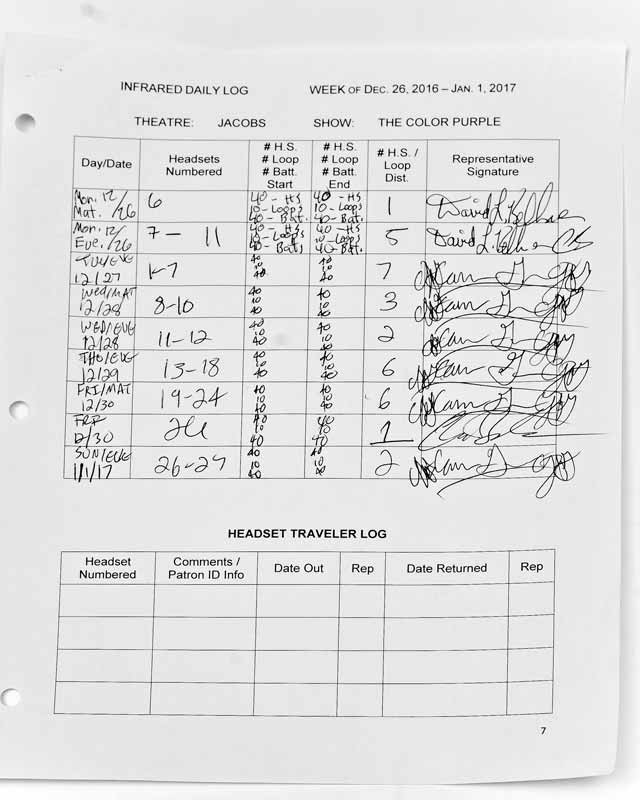 INFRARED DAILY LOG WEEK OF DEC. 26, 2016 – JAN. 1, 2017
THEATRE: JACOBS SHOW: THE COLOR PURPLE
Day/Date Headsets Numbered # H.S. # Loop # Batt. Start # H.S. # Loop # Batt. End # H.S. / Loop Dist. Representative Signature
Mon. 12/26 Mat. 6 40 - HS 10 - Loops 40 - Bat. 40 - HS 10 - Loops 40 - Bat. 1 David L.
Mon. 12/26 Eve. 7 - 11 40 - HS 10 - Loops 40 - Bats 40 - HS 10 - Loops 40 Bats 5 David L.
TUE/EVE 12/27 1-7 40 10 40 40 10 40 7
Wed/MAT 12/28 8-10 40 10 40 40 10 40 3
WED/EVE 12/28 11-12 40 10 40 40 10 40 2
THU/EVE 12/29 13-18 40 10 40 40 10 40 6
FRI/MAT 12/30 19-24 40 10 40 40 10 40 6
FRI 12/30 40 10 40 40 10 40 1
SUN/EVE 1/1/17 26-27 40 10 40 40 10 40 2
HEADSET TRAVELER LOG
Headset Numbered Comments / Patron ID Info Date Out Rep Date Returned Rep
7